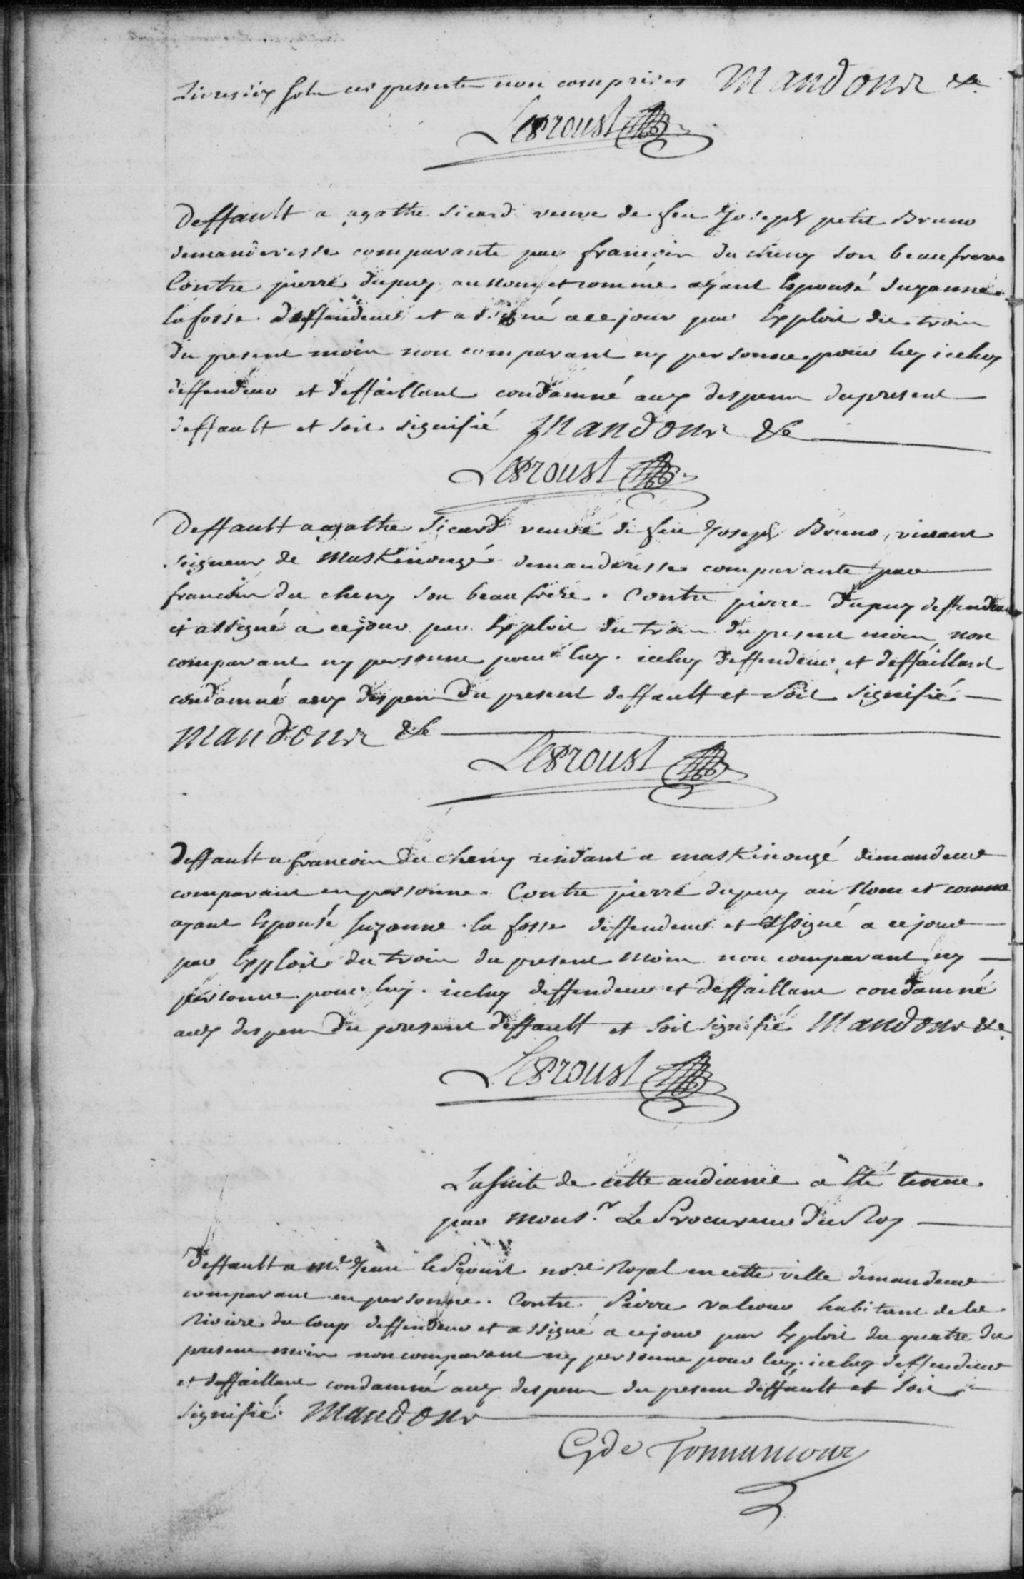 Livres six sols ces presente non comprises Mandons &c.
LeProust
Deffault a agathe sicard veuve de feu Joseph petit Bruno
demanderesse comparante par francois du cheny son beau frere
Contre pierre dupuy au nom et comme ayant Epousé suzanne
la fosse deffendeur et assigné a ce jour par Exploit du trois
du present mois non comparant ny personne pour luy iceluy
deffendeur et deffaillant condamné aux despens du present
deffault et soit signifié Mandons &c
LeProust
Deffault a agathe Sicard veuve de feu Joseph Bruno, vivant
seigneur de Maskinongé demanderesse comparante par
francois du cheny son beau frere. Contre pierre Dupuy deffendeur
et assigné a ce jour par Exploit du trois du present mois non
comparant ny personne pour luy. iceluy deffendeur et deffaillant
condamné aux despens Du present deffault et Soit signifié
Mandons &c
LeProust
Deffault a francois Du cheny residant a maskinongé demandeur
comparant en personne. Contre pierre dupuy au Nom et comme
ayant Epousé suzanne la fosse deffendeur et assigné a ce jour
par Exploit du trois du present mois non comparant ny
personne pour luy. iceluy deffendeur et deffaillant condamné
aux despens Du present deffault et soit signifié Mandons &c.
LeProust
La suite de cette audiance a Eté tenue
par Mons.r Le Procureur Du Roy
Deffault a Me. Jean le Proust no.re Royal en cette ville demandeur
comparant en personne. Contre Pierre Valeour habitant de la
Riviere du Loup deffendeur et assigné a ce jour par Exploit du quatre du
present mois non comparant ny personne pour luy, iceluy deffendeur
et deffaillant condamné aux despens du present deffault et soit
signifié. Mandons
G de Tonnancour